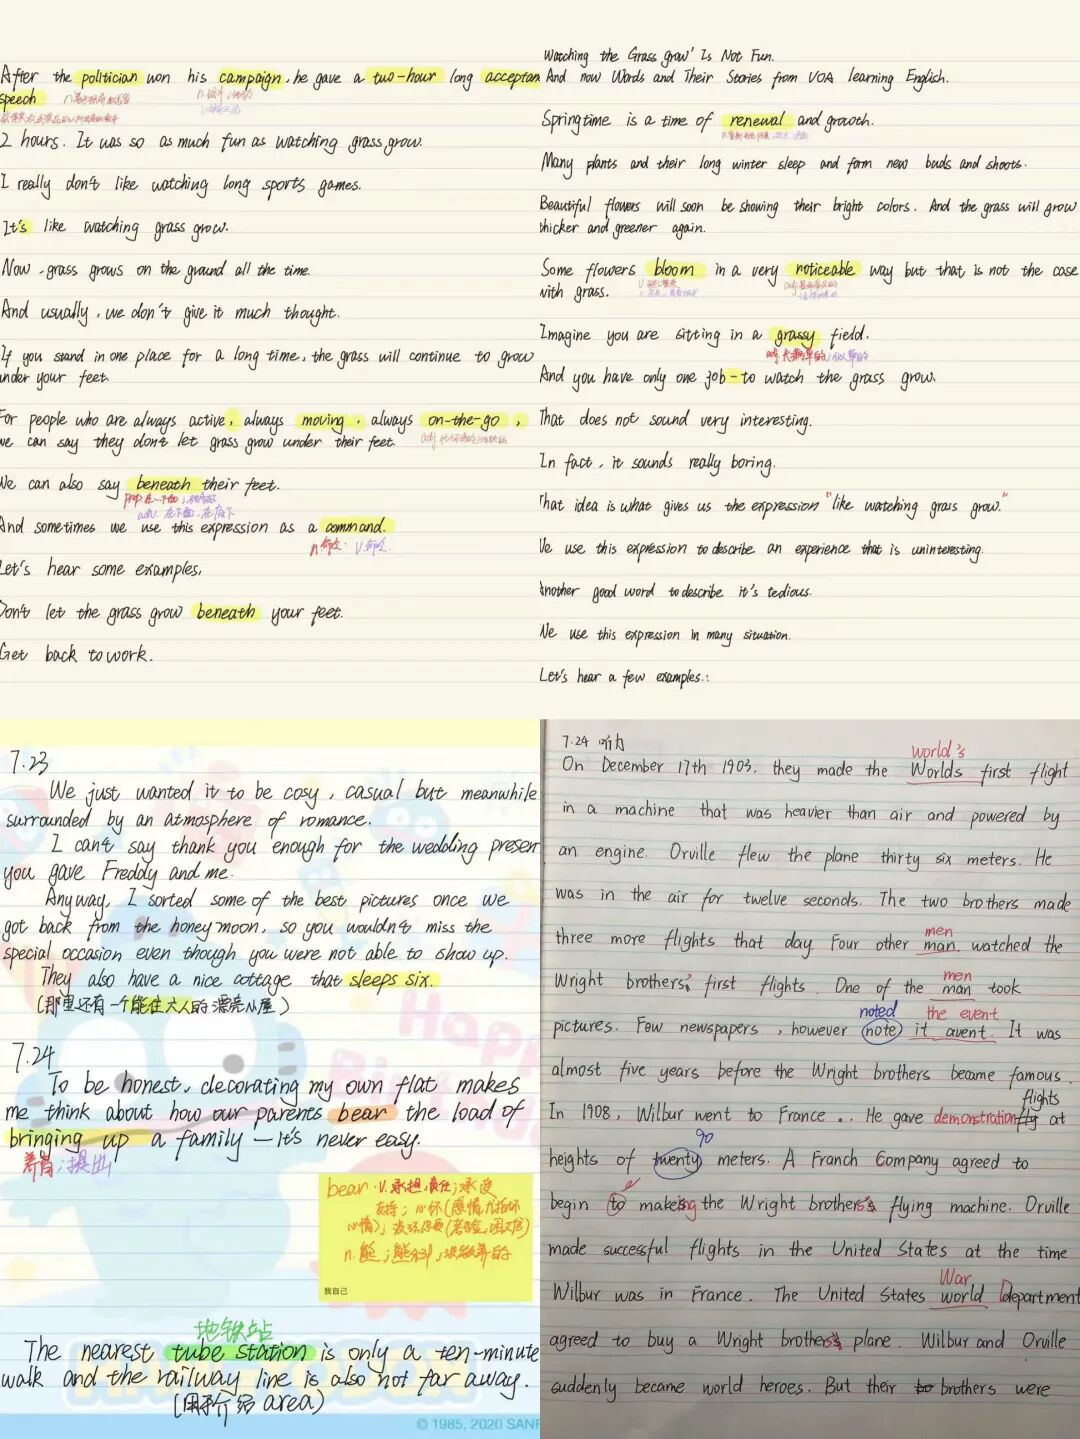 After the politician won his campaign, he gave a two-hour long acceptan
speech
2 hours. It was so as much fun as watching grass grow.
I really don't like watching long sports games.
It's like watching grass grow.
Now, grass grows on the ground all the time.
And usually, we don't give it much thought.
If you stand in one place for a long time, the grass will continue to grow
under your feet.
For people who are always active, always moving, always on-the-go,
we can say they don't let grass grow under their feet.
We can also say beneath their feet.
adv. 在下面，在底下
And sometimes we use this expression as a command.
n 命令. v 命令.
Let's hear some examples,
Don't let the grass grow beneath your feet.
Get back to work.
Watching the Grass grow' Is Not Fun.
And now Words and Their Stories from VOA learning English.
Springtime is a time of renewal and growth.
Many plants and their long winter sleep and form new buds and shoots.
Beautiful flowers will soon be showing their bright colors. And the grass will grow
thicker and greener again.
Some flowers bloom in a very noticeable way but that is not the case
with grass.
Imagine you are sitting in a grassy field.
adj 长满草的,似草的
And you have only one job-to watch the grass grow.
That does not sound very interesting.
In fact, it sounds really boring.
That idea is what gives us the expression "like watching grass grow."
We use this expression to describe an experience that is uninteresting.
Another good word to describe it's tedious.
We use this expression in many situation.
Let's hear a few examples.:
7.23
We just wanted it to be cosy, casual but meanwhile
surrounded by an atmosphere of romance.
I can't say thank you enough for the wedding presen
you gave Freddy and me.
Anyway, I sorted some of the best pictures once we
got back from the honeymoon, so you wouldn't miss the
special occasion even though you were not able to show up.
They also have a nice cottage that sleeps six.
(那里还有一个能住六人的漂亮小屋)
7.24
To be honest, decorating my own flat makes
me think about how our parents bear the load of
bringing up a family—it's never easy.
养育;提出
bear. v. 承担,责任;承受
支持; 心怀(感情,尤指坏
心情);
n. 熊;
我自己
地铁站
The nearest tube station is only a ten-minute
walk and the railway line is also not far away.
(用于介绍area)
© 1985, 2020 SANR
7.24 听力
world's
On December 17th 1903, they made the Worlds first flight
in a machine that was heavier than air and powered by
an engine. Orville flew the plane thirty six meters. He
was in the air for twelve seconds. The two brothers made
men
three more flights that day. Four other man watched the
men
Wright brothers' first flights. One of the man took
noted the event
pictures. Few newspapers, however note it avent. It was
almost five years before the Wright brothers became famous.
flights
In 1908, Wilbur went to France .. He gave demonstration fly at
90
heights of twenty meters. A Franch Company agreed to
begin to making the Wright brothers's flying machine. Orville
made successful flights in the United States at the time
War
Wilbur was in France. The United States world Department
agreed to buy a Wright brothers's plane. Wilbur and Orville
suddenly became world heroes. But their to brothers were